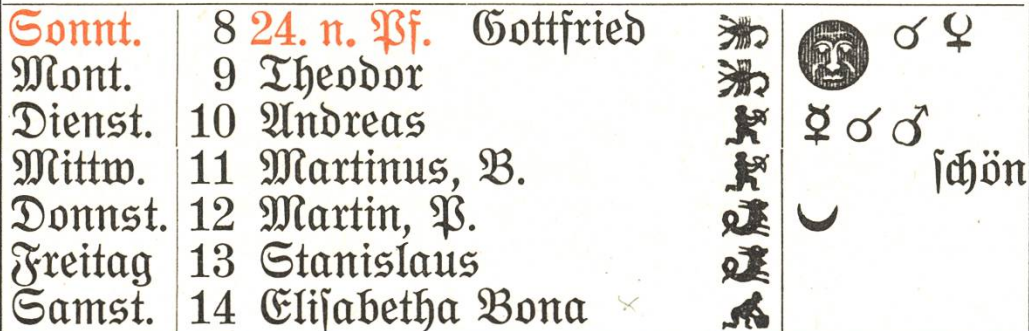 Sonnt. 8 24. n. Pf. Gottfried ☌ ♀
Mont. 9 Theodor
Dienst. 10 Andreas ☿ ☌ ♂
Mittw. 11 Martinus, B. ſchön
Donnst. 12 Martin, P.
Freitag 13 Stanislaus
Samst. 14 Eliſabetha Bona